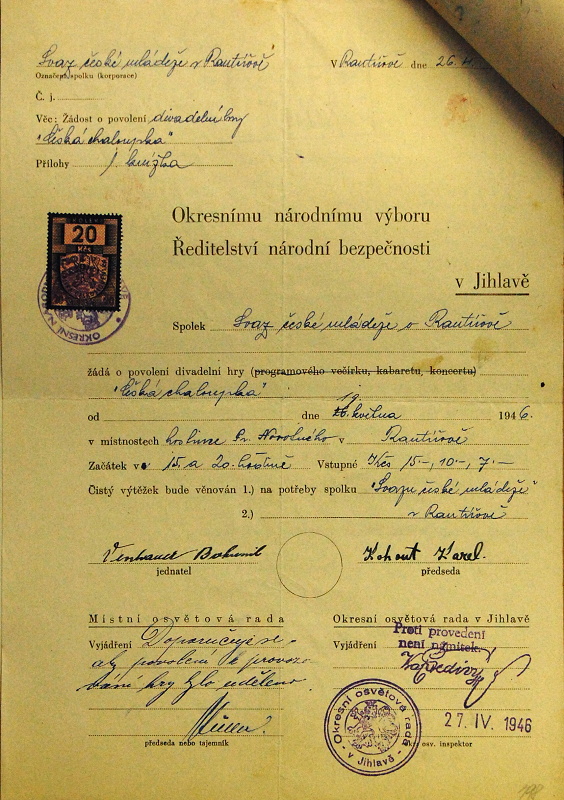 Svaz české mládeže v Rantířově
V Rantířově dne 26.
Označení spolku (korporace)
Č. j.
Věc: Žádost o povolení divadelní hry
"Česká chaloupka"
Přílohy 1 knížka
20
KČS
Okresnímu národnímu výboru
Ředitelství národní bezpečnosti
v Jihlavě
OKRESNÍ
Spolek Svaz české mládeže v Rantířově
žádá o povolení divadelní hry (programového večírku, kabaretu, koncertu)
"Česká chaloupka"
19.
od dne května 1946.
v místnostech hostince Fr. Novotného v Rantířově
Začátek v 15. a 20. hodině Vstupné Kčs 15-, 10-, 7.-
Čistý výtěžek bude věnován 1.) na potřeby spolku "Svazu české mládeže"
2.) v Rantířově
Bohumil Kohout Karel.
jednatel předseda
Místní osvětová rada
Vyjádření Doporučuje se
aby povolení k provozo-
vání hry bylo uděleno.
předseda nebo tajemník
Okresní osvětová rada v Jihlavě
Vyjádření
Proti provedení
není námitek.
Okresní osvětová rada
v Jihlavě
27. IV. 1946
osv. inspektor